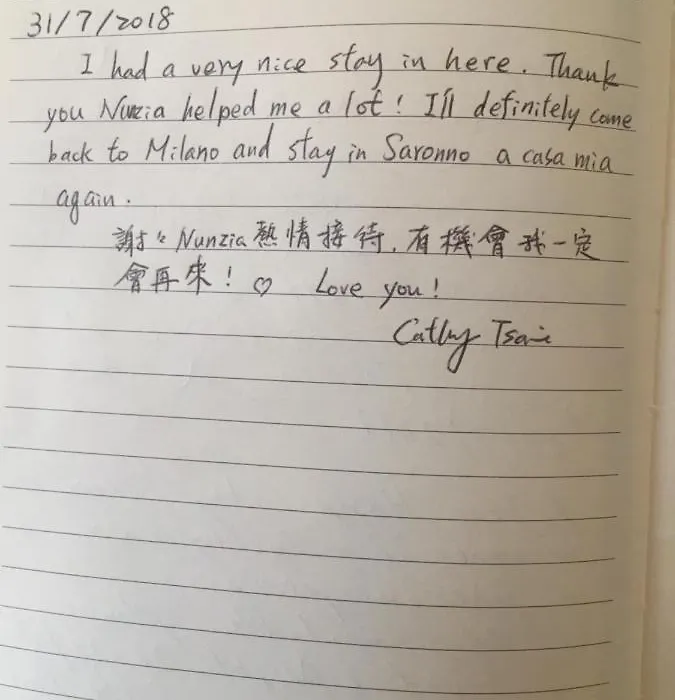 31/7/2018
I had a very nice stay in here. Thank
you Nunzia helped me a lot! I'll definitely come
back to Milano and stay in Saronno a casa mia
again.
謝々Nunzia熱情接待,有機會我一定
會再來!♡ Love you!
Cathy Tsai